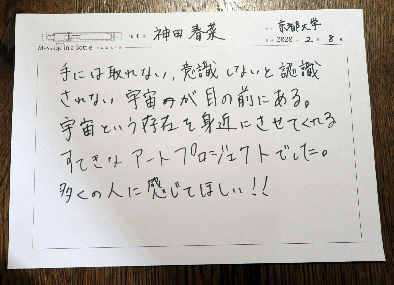 神田春菜
京都大学
Message in a Bottle
2020 - 2 - 8
手には取れない、意識しないと認識
されない宇宙が目の前にある。
宇宙という存在を身近にさせてくれる
すてきなアートプロジェクトでした。
多くの人に感じてほしい!!